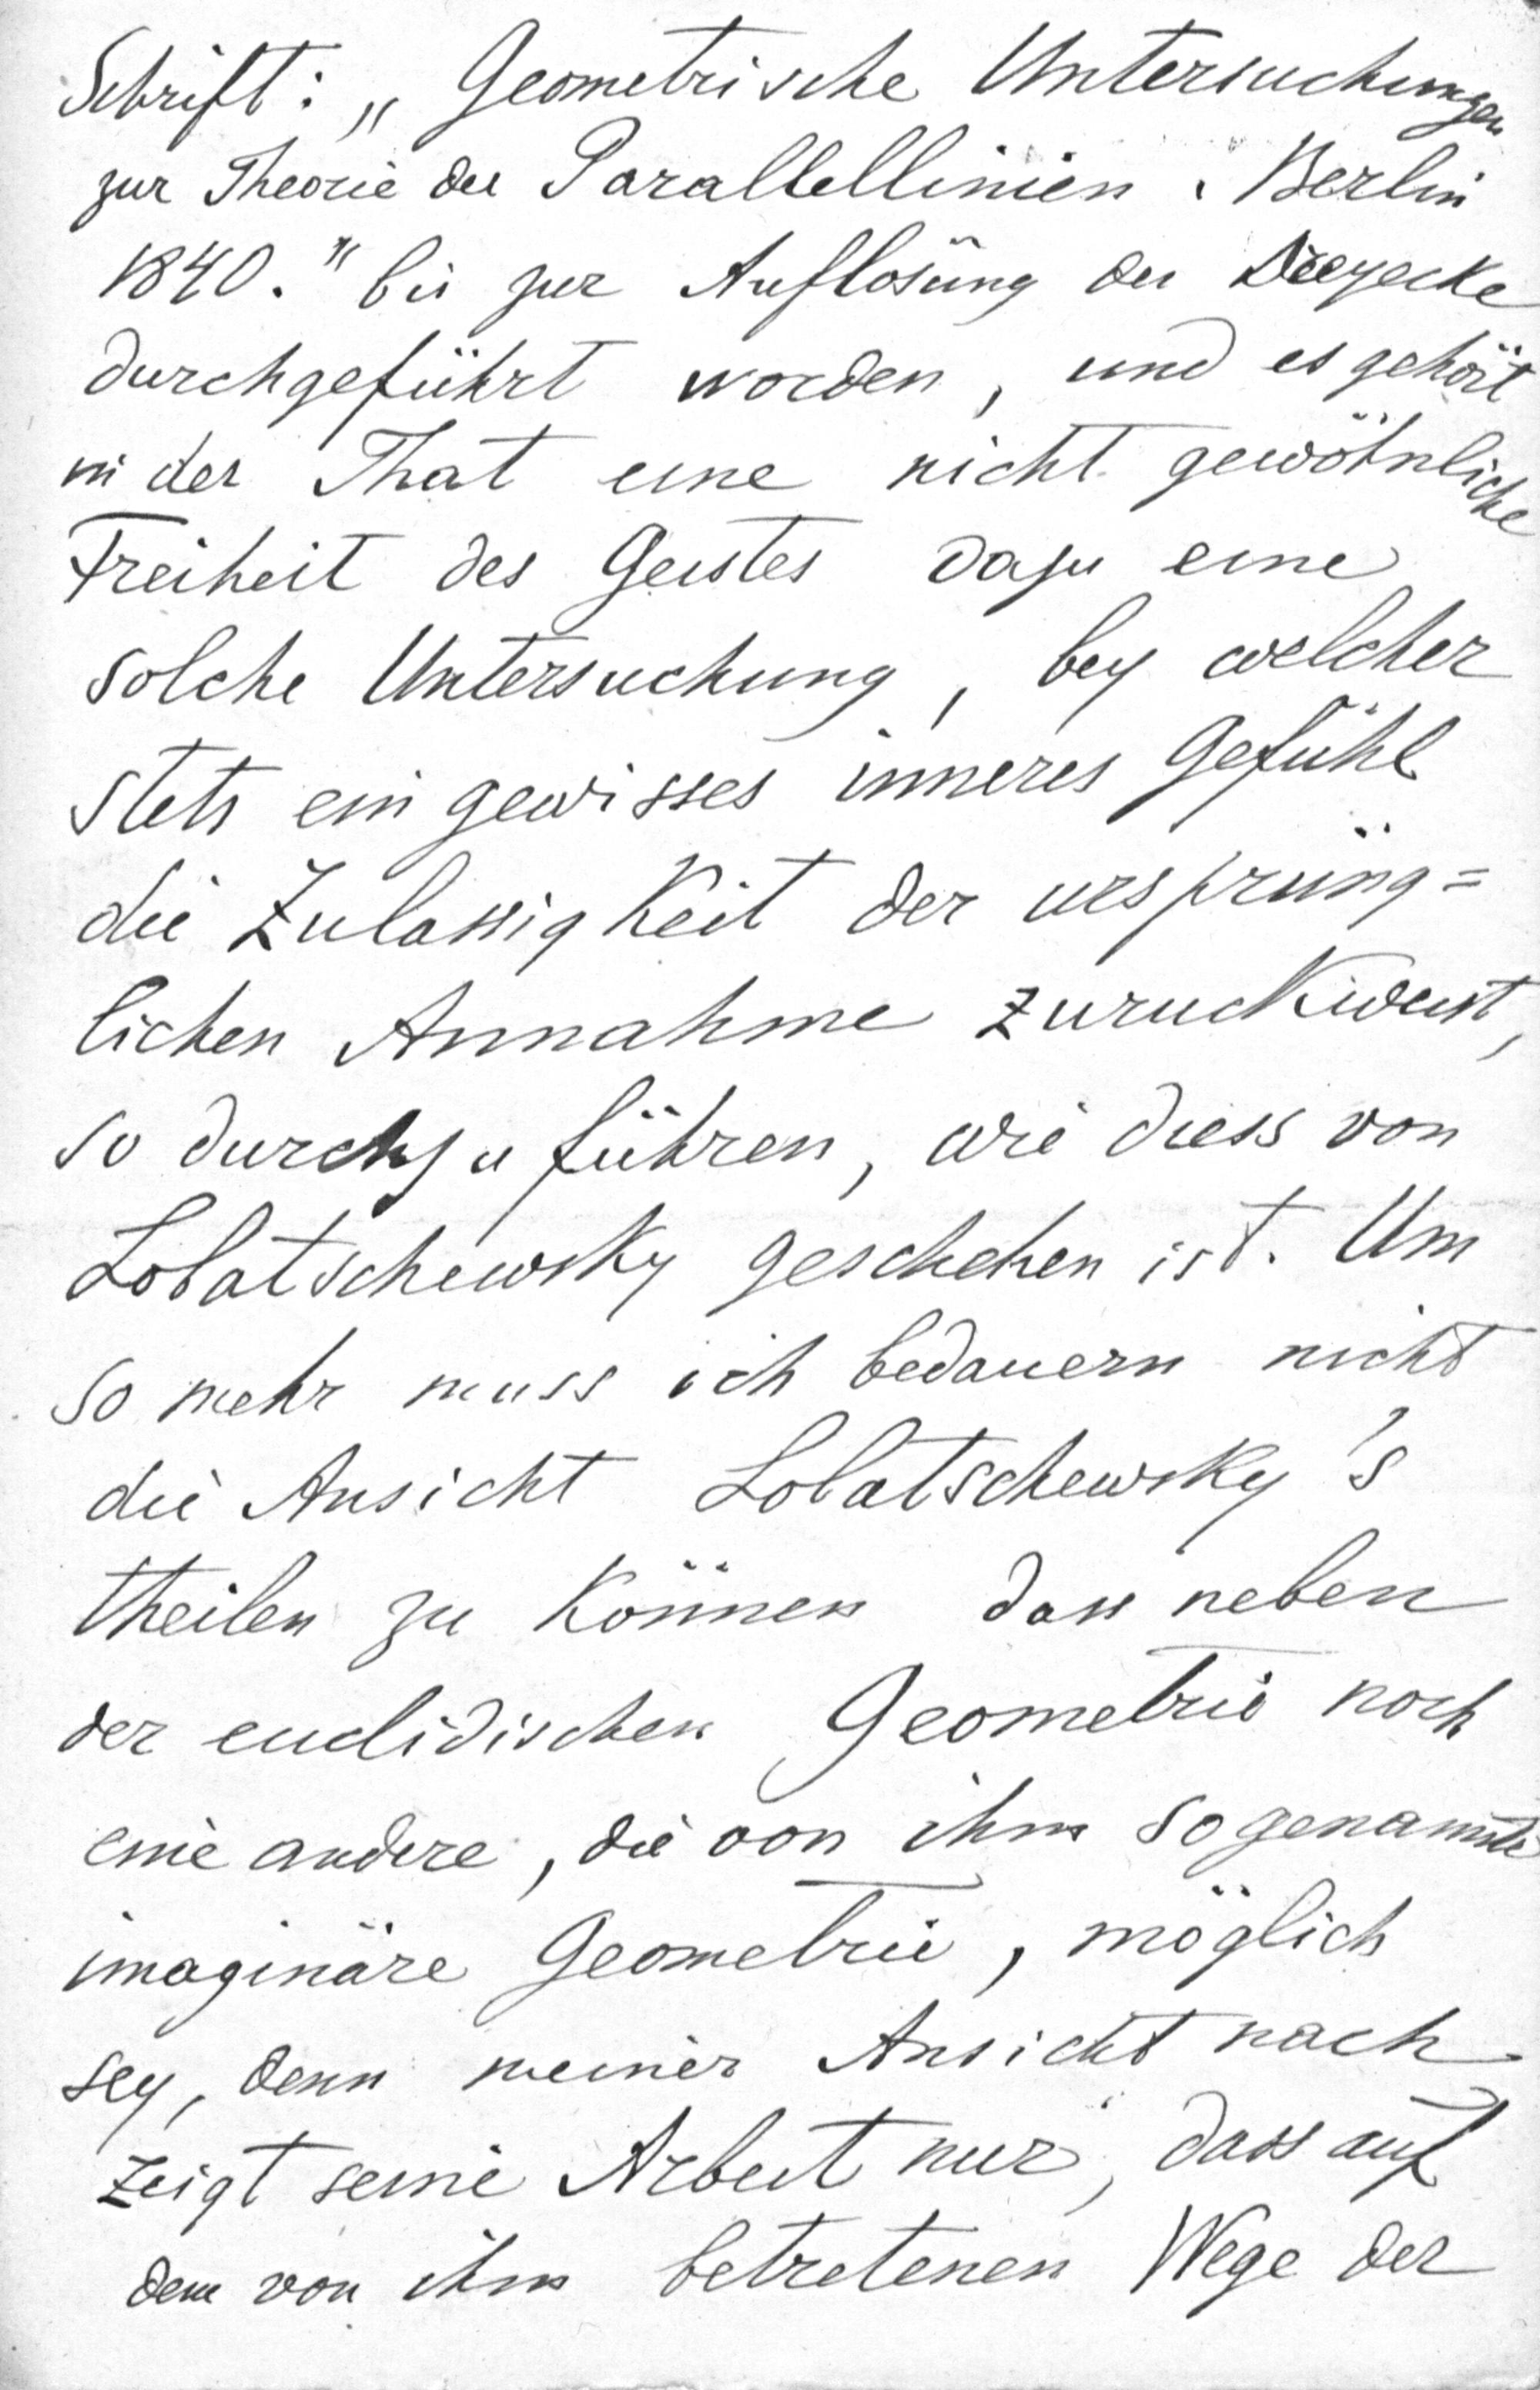 Schrift: „Geometrische Untersuchungen
zur Theorie der Parallellinien. Berlin
1840." bis zur Auflosüng der Dreyecke
durchgeführt worden, und es gehört
in der That eine nicht gewöhnliche
Freiheit des Geistes dazu eine
solche Untersuchung, bey welcher
stets ein gewisses inneres Gefühl
die Zulassigkeit der ursprüng=
lichen Annahme zuruckweist,
so durchzuführen, wie diess von
Lobatschewsky geschehen ist. Um
so mehr muss ich bedauern nicht
die Ansicht Lobatschewsky's
theilen zu können dass neben
der euclidischen Geometrie noch
eine andere, die von ihm sogenannte
imaginäre Geometrie, möglich
sey, denn meiner Ansicht nach
zeigt seine Arbeit nur, dass auf
dem von ihm betretenen Wege der